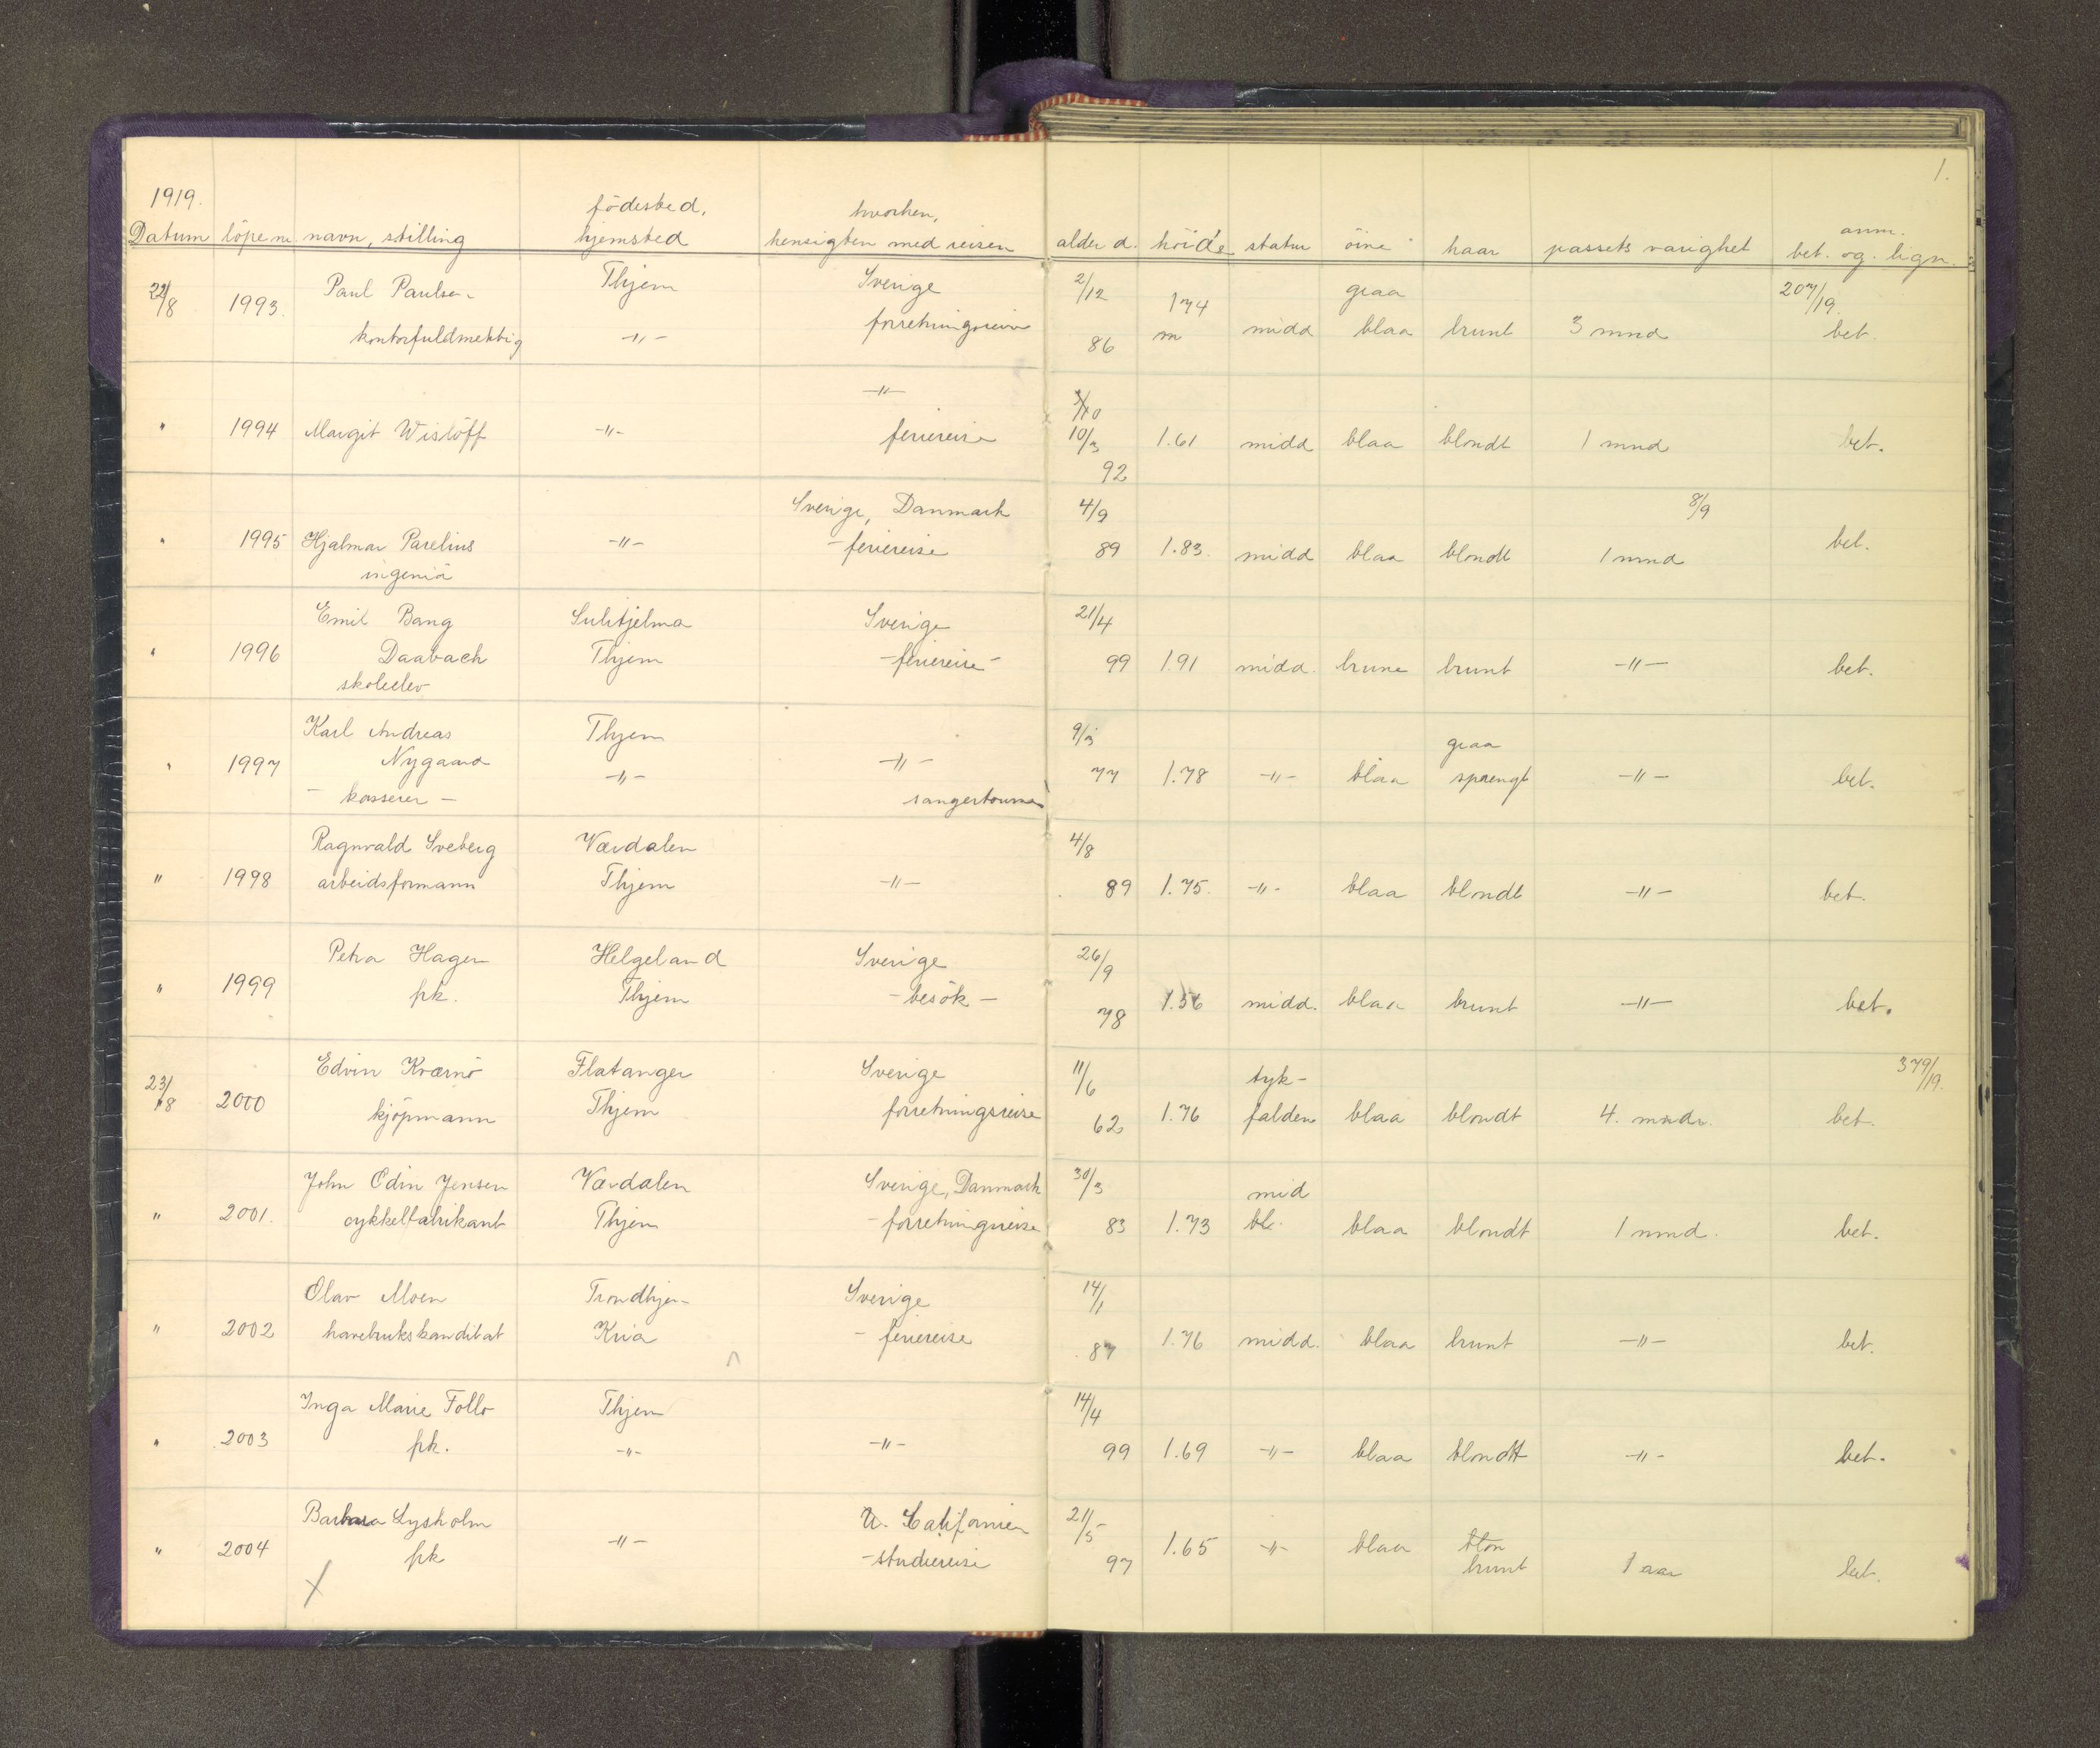 1.
1919.
Datum löpenr navn, stilling födested, hjemsted hvorhen, hensigten med reisen alder d. höide statur öine haar passets varighet anm. bet. og. lign.
22/8 1993. Paul Paulsen Thjem Sverige 2/12 174 graa 207/19.
kontorfuldmektig -"- forretningsreise 86 m midd blaa brunt 3 mnd bet.
-"-
" 1994 Margit Wislöff -"- feriereise 10/3 1.61 midd blaa blondt 1 mnd bet.
92
Sverige, Danmark 4/9 8/9
" 1995 Hjalmar Parelius -"- -feriereise 89 1.83. midd blaa blondt 1 mnd bet.
ingeniö
Emil Bang Sulitjelma Sverige 21/4
" 1996 Daabach Thjem -feriereise- 99 1.91 midd. brune brunt -"- bet.
skoleelev
Karl Andreas Thjem 9/3 graa
" 1997 Nygaard -"- -"- 77 1.78 -"- blaa sprengt -"- bet.
- kasserer - sangertourne
Ragnvald Sveberg Værdalen 4/8
" 1998 arbeidsformann Thjem -"- 89 1.75. -"- blaa blondt -"- bet.
Petra Hagen Helgeland Sverige 26/9
" 1999 frk. Thjem - besök - 78 1.56 midd. blaa brunt -"- bet.
Edvin Kværnö Flatanger Sverige 11/6 tyk- 379/19.
23/8 2000 kjöpmann Thjem forretningsreise 62 1.76 falden blaa blondt 4. mndr. bet.
John Edin Jensen Værdalen Sverige, Danmark 30/3 mid
" 2001. cykkelfabrikant Thjem - forretningsreise 83 1.73 bl. blaa blondt 1 mnd. bet.
Olav Moen Trondhjem Sverige 14/1
" 2002 havebrukskanditat Kria - feriereise 87 1.76 midd. blaa brunt -"- bet.
Inga Marie Follo Thjem 14/4
" 2003 frk. -"- -"- 99 1.69 -"- blaa blondt -"- bet.
Barbara Lysholm U. Californien 21/5
" 2004 frk -"- -studiereise 97 1.65 -"- blaa brunt 1 aar bet.
X